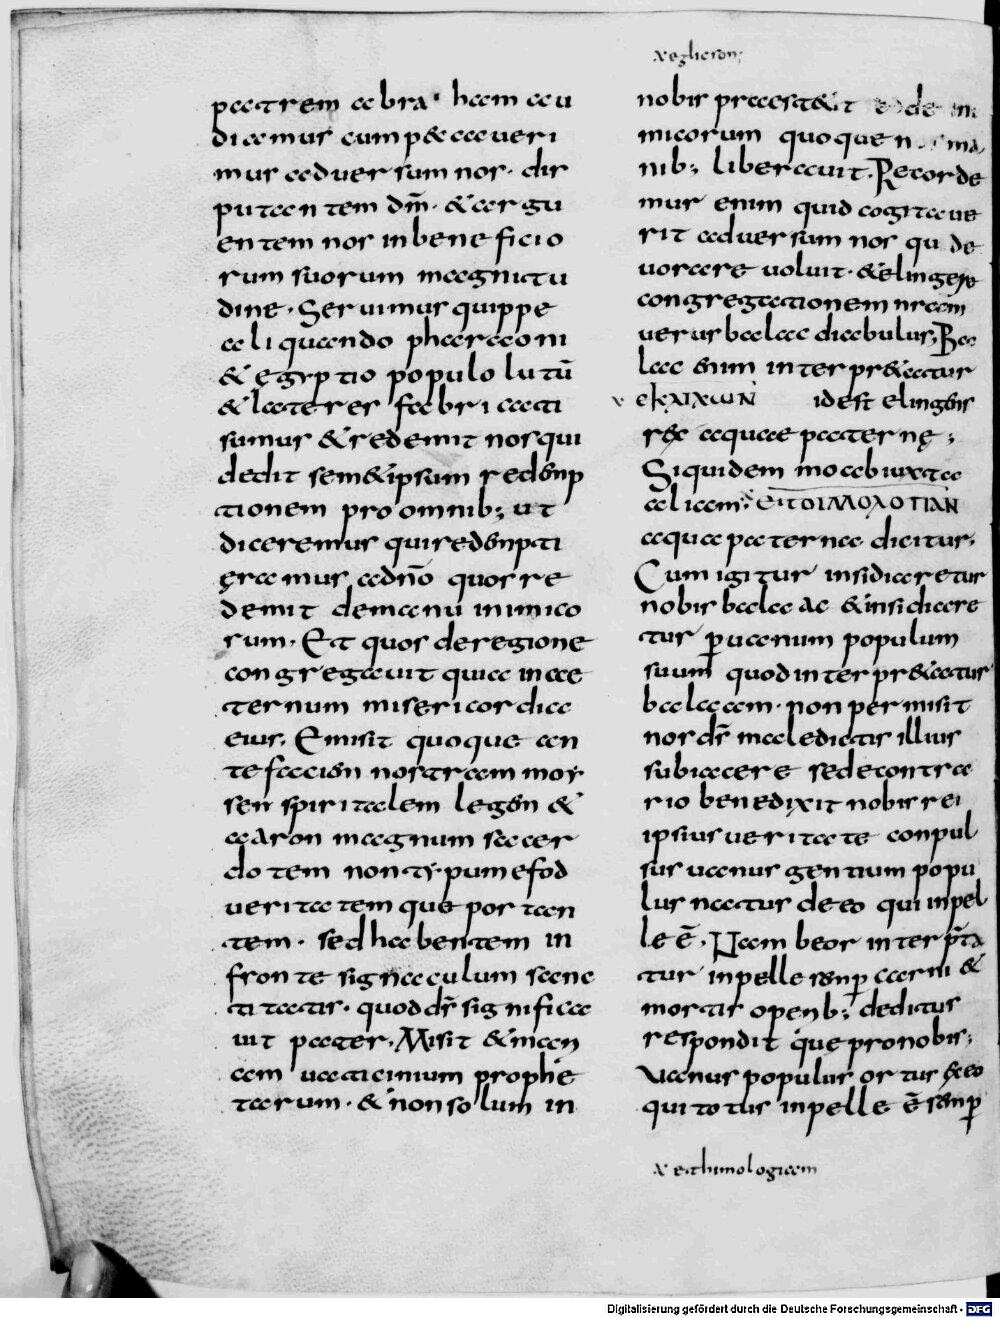 x eglicson;
patrem abra· ham au
diamus cum p& ccaueri
mus aduersum nos· dis
putan tem dm̄· & argu
en tem nos in bene ficio
rum suorum magnitu
dine· Seruimus quippe
ali quando pharaoni
& egyptio populo lutū
& lateres fabri cati
sumus & redemit nos qui
dedit sem&ipsum redemp
tionem pro omnib; ut
diceremus qui redempti
ęramus adnō quos re
demit demanu inimico
rum· Et quos deregione
congregauit quia in ae
ternum misericordia
eius· Emisit quoque an
te faciem nostram moy
sen spiritalem legem &
aaron magnum sacer
do tem non typum efod
ueritatem que portan
tem· sed habentem in
fronte signaculum sanc
titatis· quod ds̄ significa
uit pater· Misit & mari
am uaticinium prophe
tarum· & non solum in
nobis praestitit de
micorum quoque nos ma
nib; liberauit· Recorde
mur enim quid cogitaue
rit aduersum nos qui de
uorare uoluit· & elingere
congregationem nr̄am
uersus balac diabulus; Ba
lac enim interpr&atur
x ЄΚΛΙΧωΝ idest elingens
rex aquae paternę;
Siquidem moab iuxta
alicam; x ЄΙΤΟΙΜΟΛΟΓΙΑΝ
aqua paterna dicitur;
Cum igitur insidiaretur
nobis balac & insidiare
tur p̱ uanum populum
suum quod interpr&atur
balaam· non permisit
nos ds̄ maledictis illius
subiacere sed econtra
rio benedixit nobis rei
ipsius ueritate conpul
sus uanus gentium popu
lus natus de eo qui inpel
le ē· Nam beor interpta
tur inpelle semp̱ carni &
mortis openb; deditus
respondit que pronobis;
Uanus populus ortus ex eo
qui totus inpelle ē semp̱
x ethimologiam